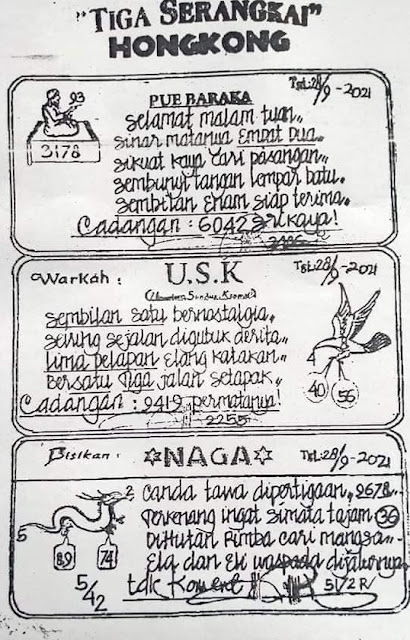 "TIGA SERANGKAI"
HONGKONG
Tgl: 28/9-2021
93
3178
PUE BARAKA
Selamat malam tuan,,
Sinar matanya Empat Dua,,
Sikuat kaya cari pasangan,,
Sembunyi tangan lempar batu.
Sembilan Enam siap terima.
Cadangan : 6042 Srikaya!
Warkah :
U.S.K
Tgl: 28/9-2021
Sembilan Satu bernostalgia,
Seiring sejalan digubuk derita,,
Lima Delapan Elang katakan,
Bersatu Tiga jalan setapak,,
Cadangan : 9419 permatanya!
2255
4
40
56
Bisikan :
NAGA
Tgl: 28/9-2021
Canda tawa dipertigaan, 2678,,
Terkenang ingat Simata tajam 36
DiHutan Rimba cari mangsa
Ela dan Eli waspada dijalurnya
tdk Koment
5172 R/
2
5
89
74
5/42